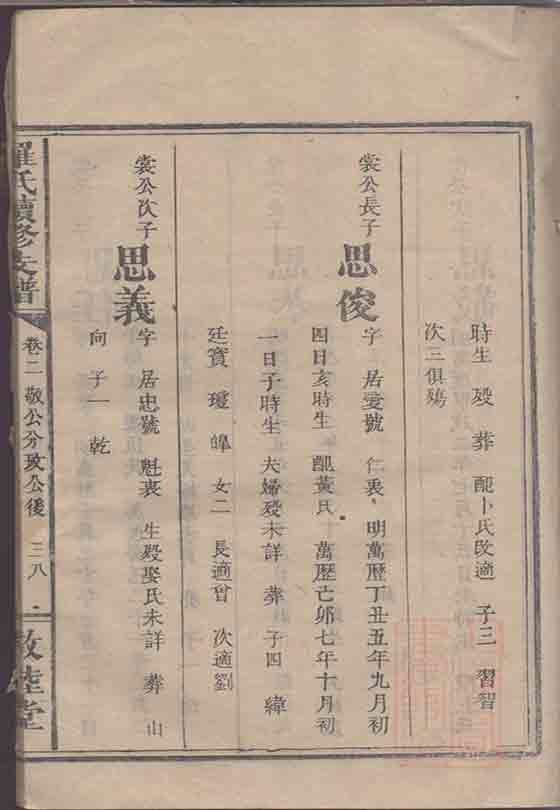 時生 歿 葬 配卜氏改適 子三 習智
次三俱殤
裳公長子 思俊 字 居愛號 仁裏 明萬歷丁丑五年九月初
四日亥時生 配黃氏 萬歷己卯七年十月初
一日子時生 夫婦歿未詳 葬 子四 緯
廷寶 璦 皥 女二 長適曾 次適劉
裳公次子 思義 字 居忠號 魁裏 生歿娶氏未詳 葬山
向 子一 乾
羅氏續修支譜 卷二 敬公分致公後 三八 敦睦堂